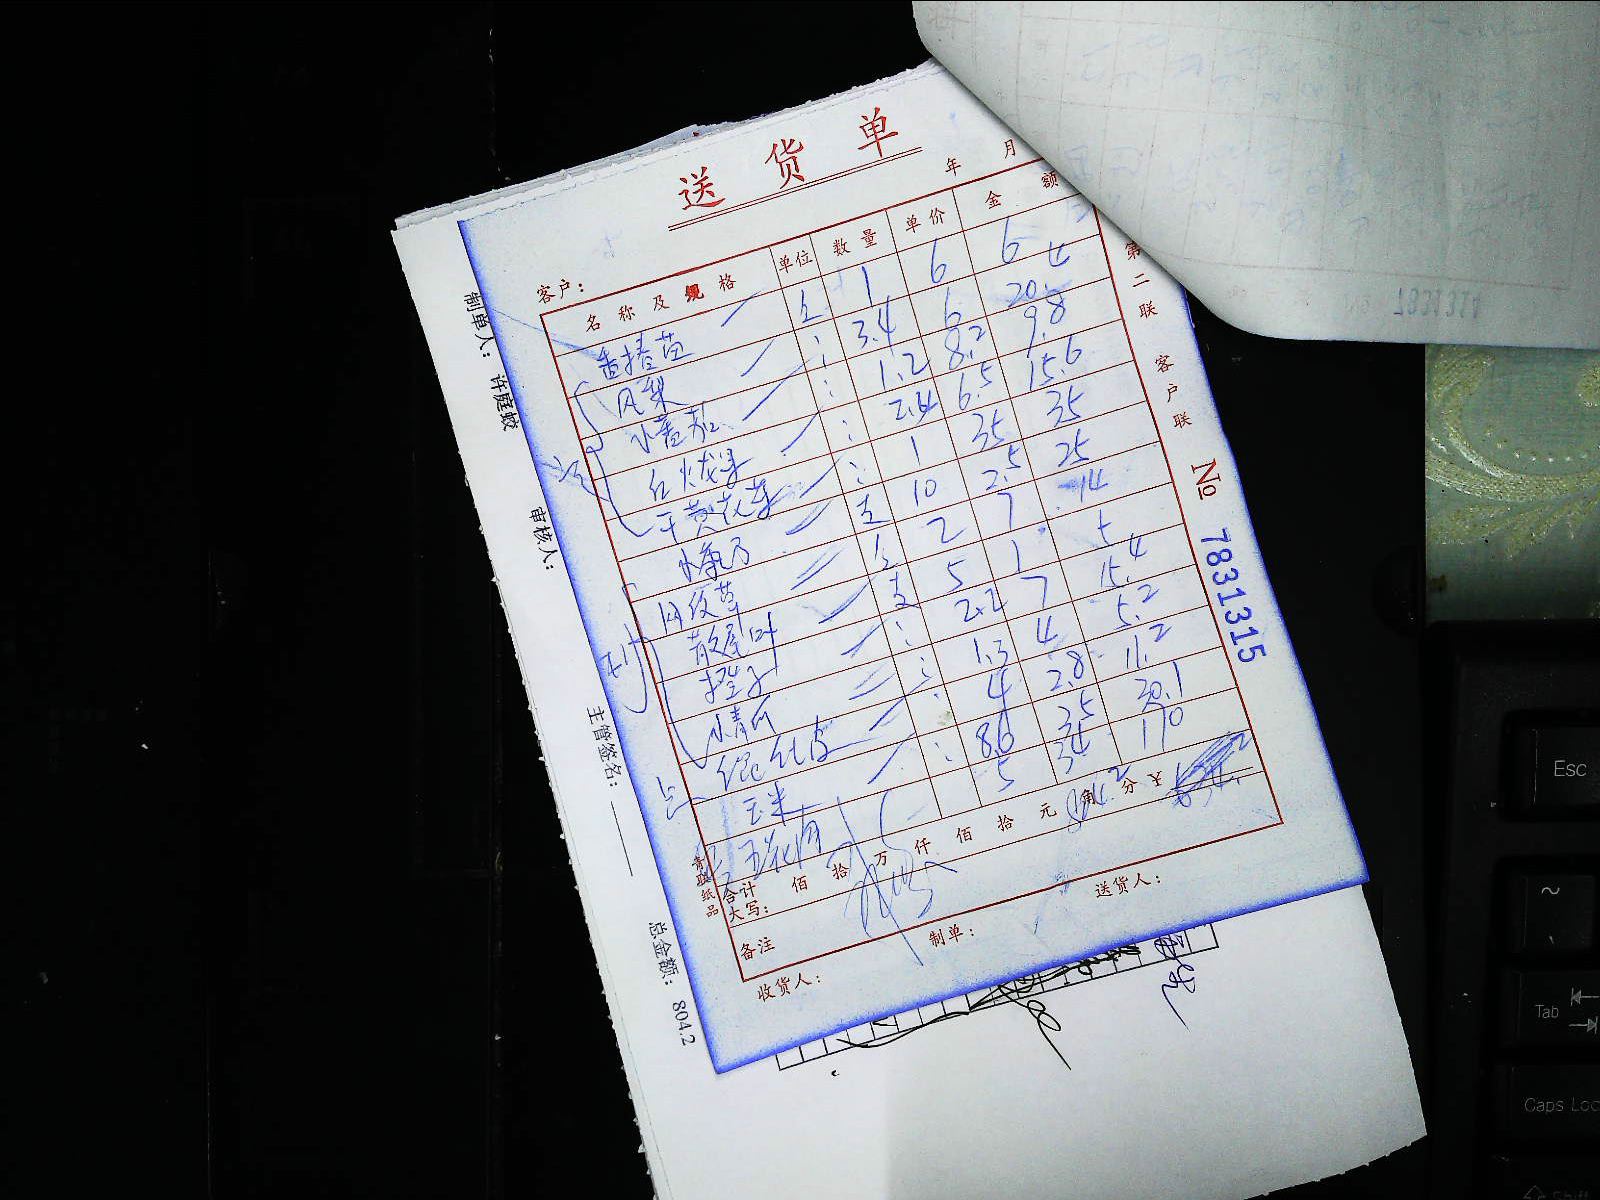 送货单
年 月
客户：
名称及规格 单位 数量 单价 金额
香椿苗 1 6 6
凤梨 3.4 6 20.4
小番茄 1.2 8.2 9.8
红火龙果 2.4 6.5 15.6
干黄花菜 1 35 35
10 2.5 25
网纹草 2 7 14
散尾叶 支 5 1 5
橙子 2.2 7 15.4
小青柠 1.3 4 5.2
4 2.8 11.2
玉米 8.6 3.5 30.1
五花肉 5 34 170
合计
大写： 佰 拾 万 仟 佰 拾 元 角 分
备注
收货人： 制单： 送货人：
第二联 客户联
№ 7831315
青联纸品
制单人： 许庭蛟
审核人：
主管签名：
总金额： 804.2
7831314
Esc
~
Tab
Caps Loc
Shift